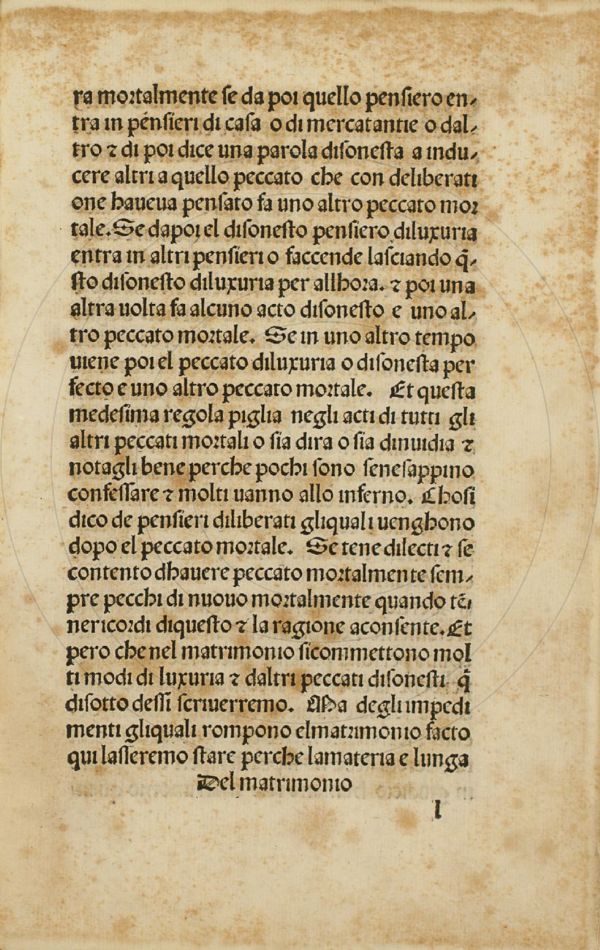 ra mortalmente se da poi quello pensiero en⸗
tra in pēnsieri di casa o di mercatantie o dal⸗
tro ⁊ di poi dice una parola disonesta a indu⸗
cere altri a quello peccato che con deliberati
one haueua pensato fa uno altro peccato mor
tale. Se dapoi el disonesto pensiero diluxuria
entra in altri pensieri o faccende lasciando q̄⸗
sto disonesto diluxuria per allhora. ⁊ poi una
altra uolta fa alcuno acto disonesto e uno al⸗
tro peccato mortale. Se in uno altro tempo
uiene poi el peccato diluxuria o disonesta per
fecto e uno altro peccato mortale. Et questa
medesima regola piglia negli acti di tutti gli
altri peccati mortali o sia dira o sia dinuidia ⁊
notagli bene perche pochi sono senesappino
confessare ⁊ molti uanno allo inferno. Chosi
dico de pensieri diliberati gliquali uenghono
dopo el peccato mortale. Se tene dilecti ⁊ se
contento dhauere peccato mortalmente sem⸗
pre pecchi di nuouo mortalmente quando tēi
nericordi diquesto ⁊ la ragione aconsente. Et
pero che nel matrimonio sicommettono mol
ti modi di luxuria ⁊ daltri peccati disonesti q̄
disotto dessi scriuerremo. Ma degli impedi
menti gliquali rompono elmatrimonio facto
qui lasseremo stare perche lamateria e lunga
Del matrimonio
l